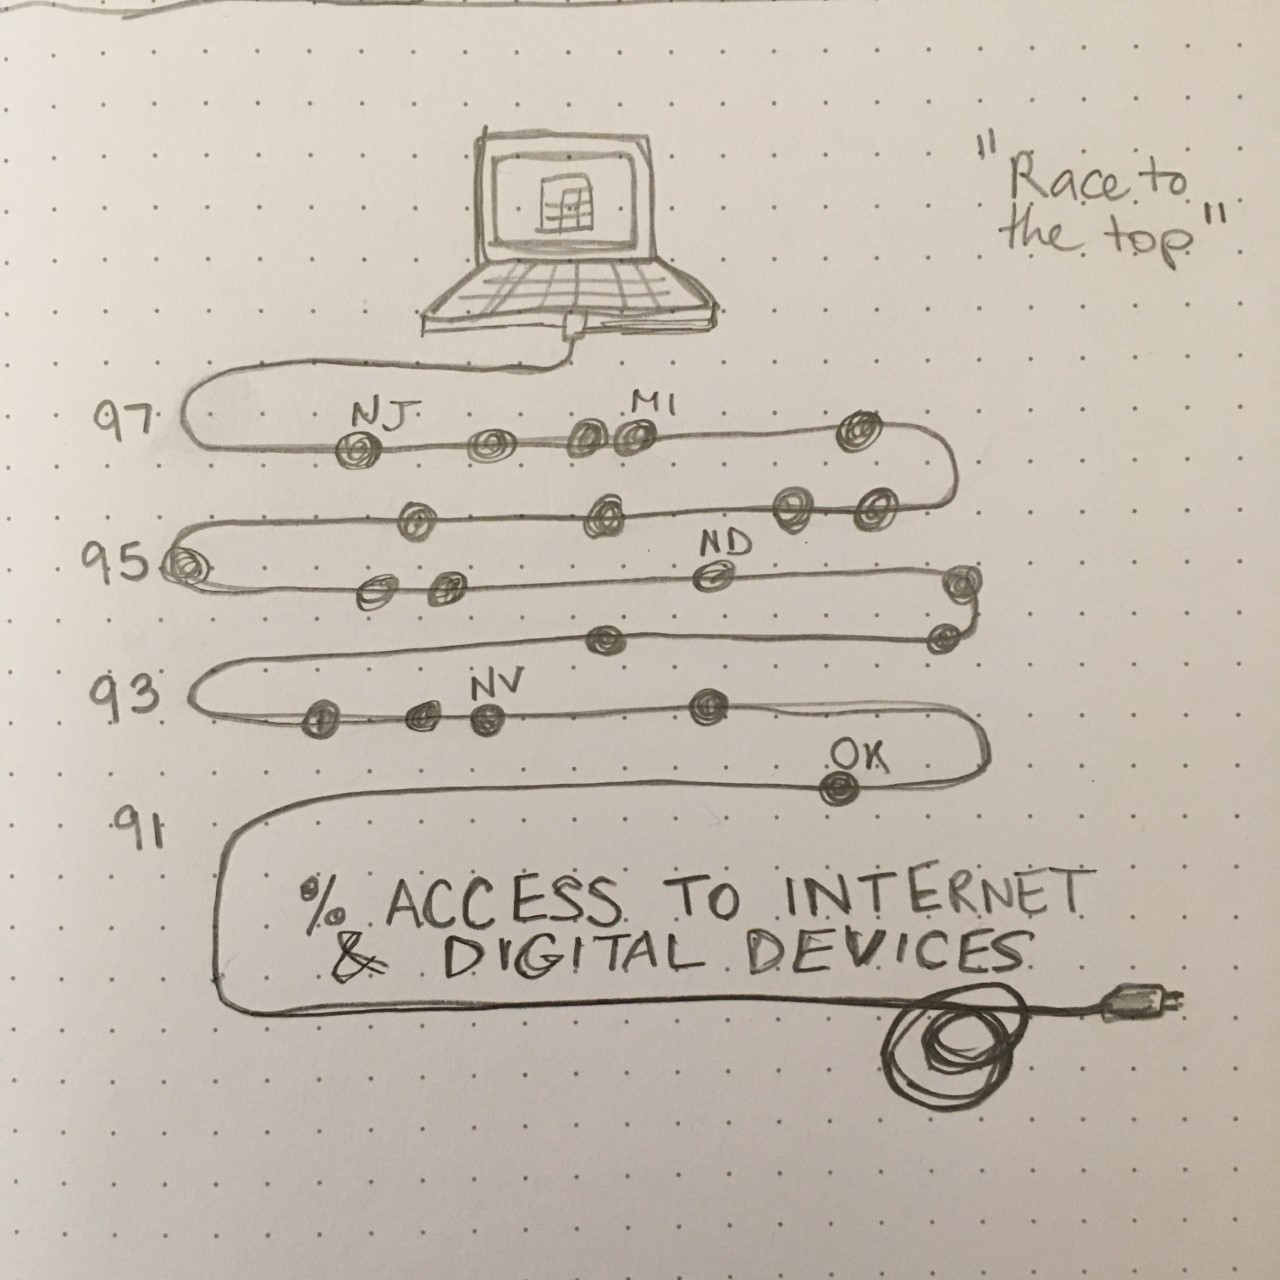 "Race to
the top"
97
NJ
MI
95
ND
93
NV
OK
91
% ACCESS TO INTERNET
& DIGITAL DEVICES